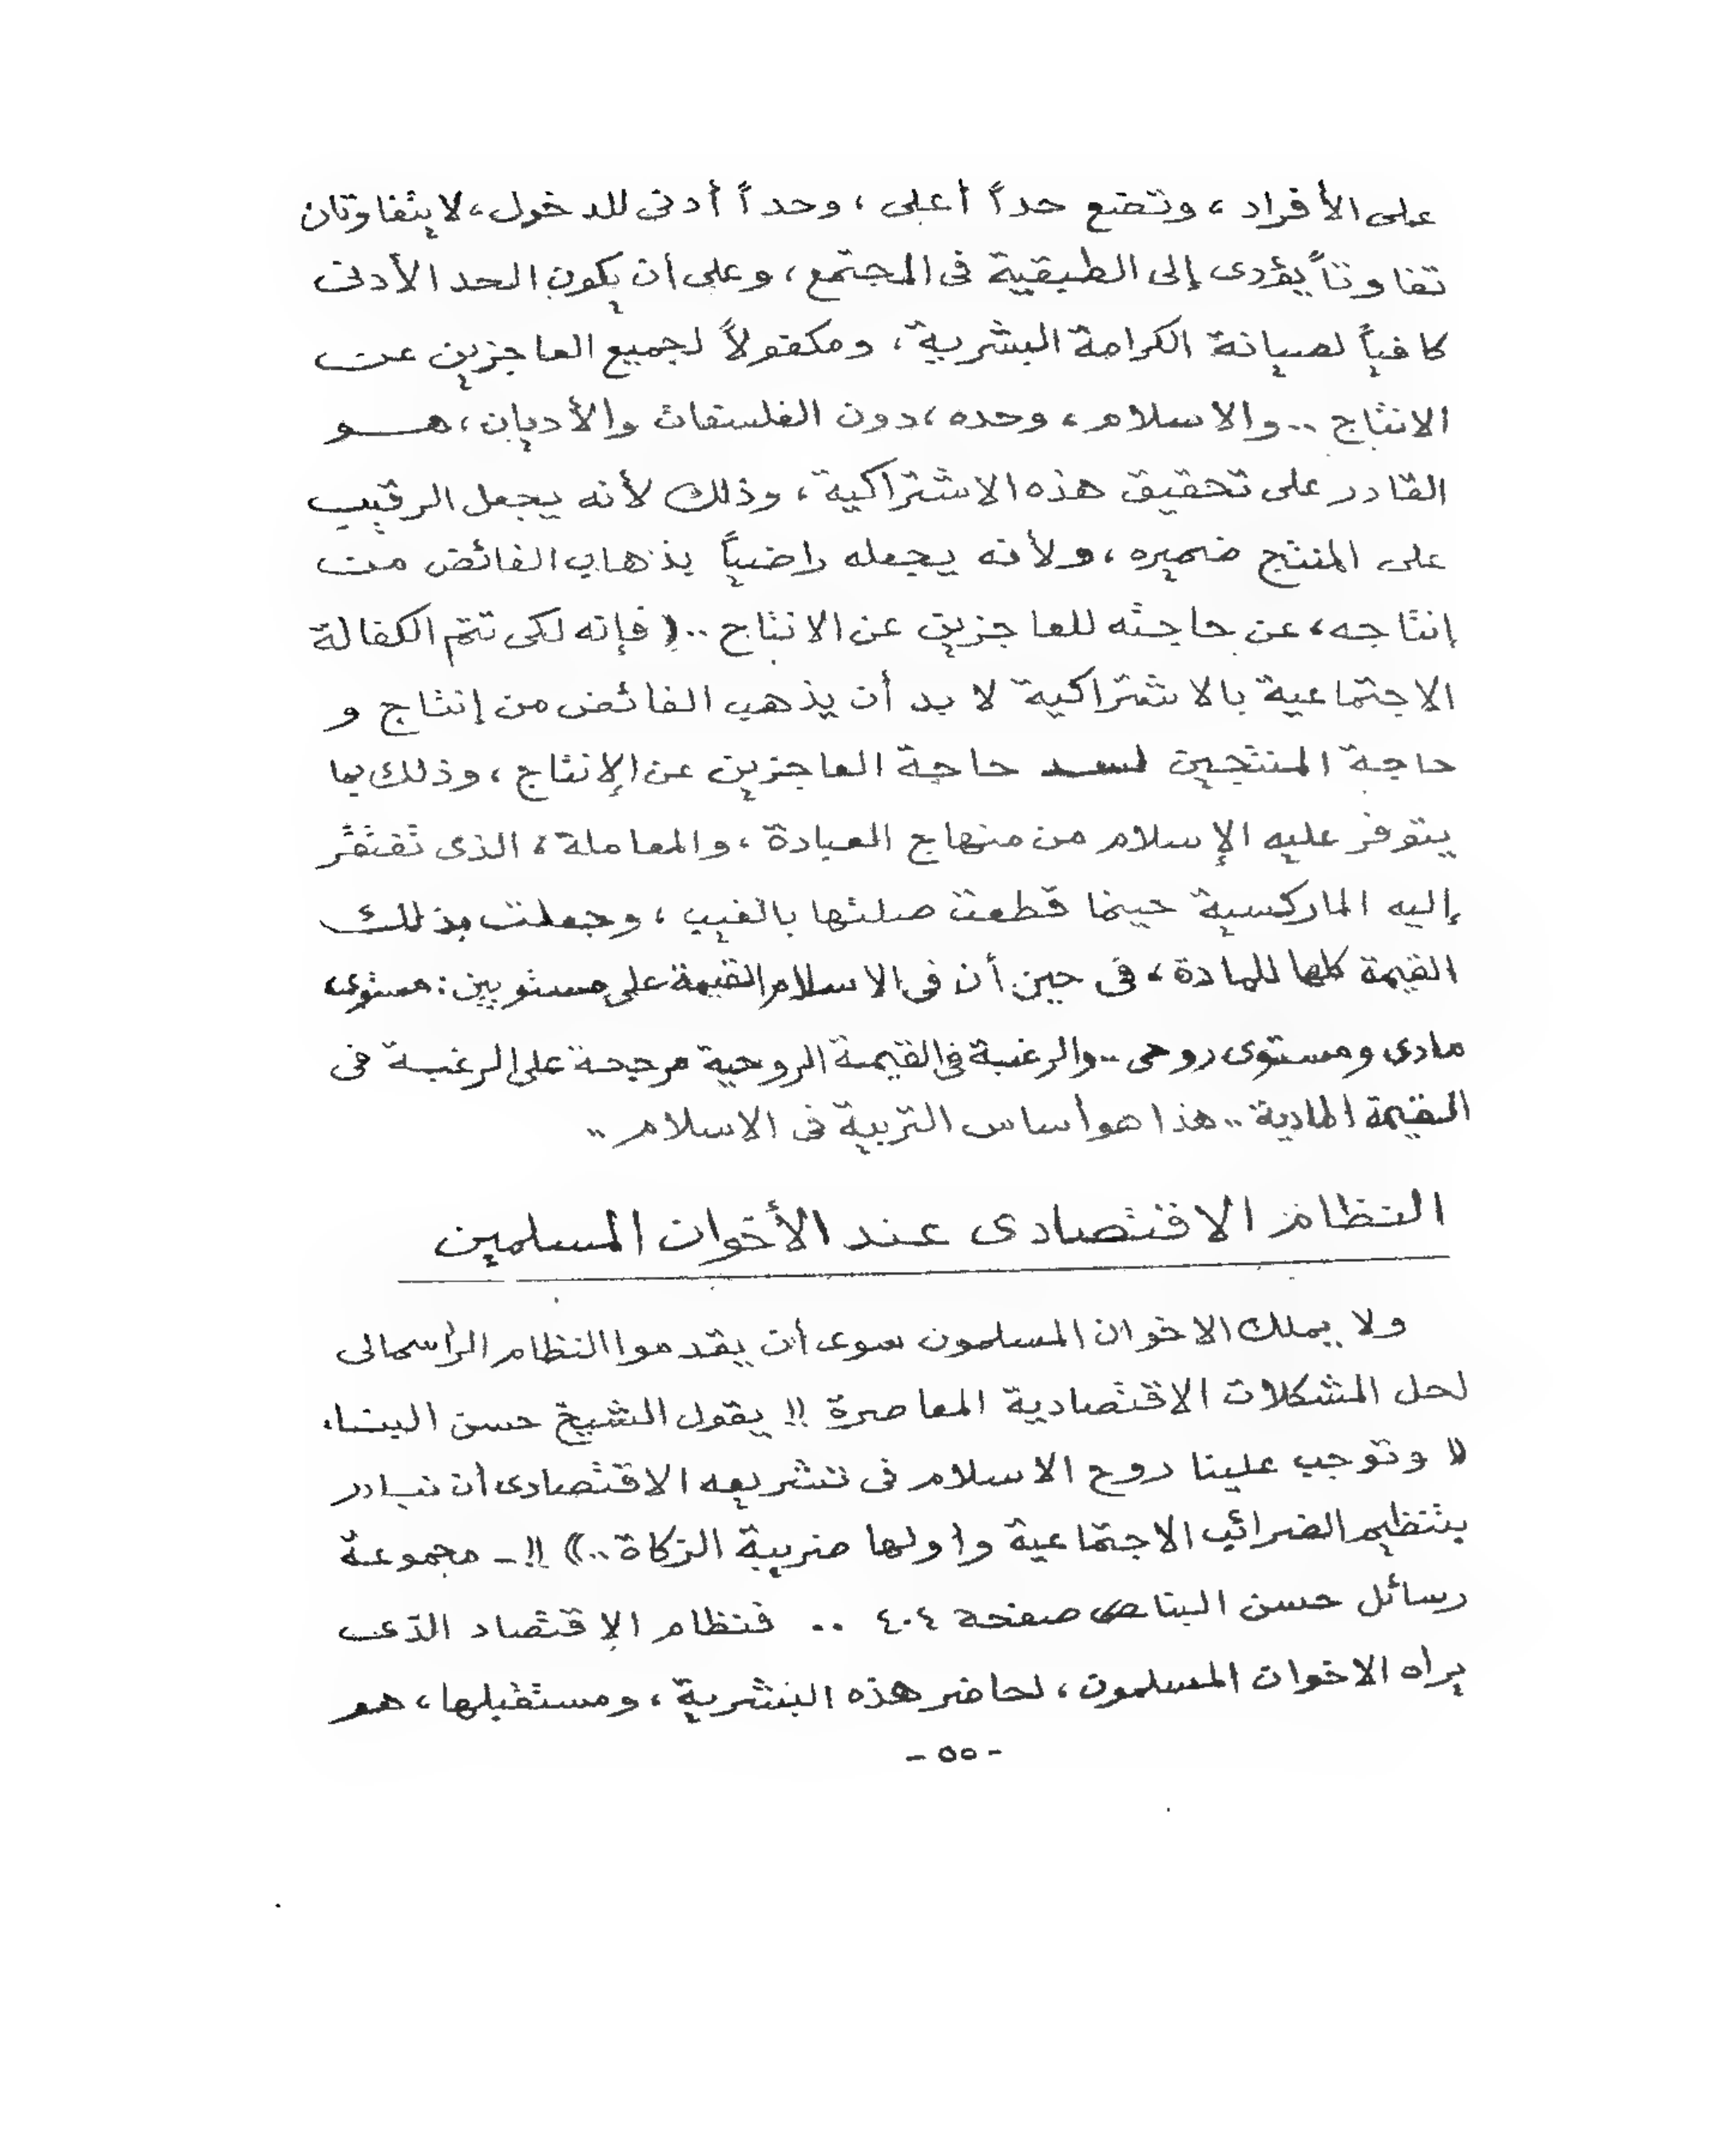 على الأفراد ، وتضع حداً أعلى ، وحداً أدنى للدخول ، لا يتفاوتان
تفاوتاً يؤدى إلى الطبقية فى المجتمع ، وعلى أن يكون الحد الأدنى
كافياً لصيانة الكرامة البشرية ، ومكفولاً لجميع العاجزين عن
الانتاج .. والاسلام ، وحده ، دون الفلسفات والأديان ، هـو
القادر على تحقيق هذه الاشتراكية ، وذلك لأنه يجعل الرقيب
على المنتج ضميره ، ولأنه يجعله راضياً بذهاب الفائض من
إنتاجه ، عن حاجته للعاجزين عن الانتاج .. ( فإنه لكى تتم الكفالة
الاجتماعية بالاشتراكية لا بد أن يذهب الفائض من إنتاج و
حاجة المنتجين لسد حاجة العاجزين عن الإنتاج ، وذلك بما
يتوفر عليه الإسلام من منهاج العبادة ، والمعاملة ، الذى تَفْتَقَر
إليه الماركسية حينما قطعت صلتها بالغيب ، وجعلت بذلك
القيمة كلها للمادة ، فى حين أن فى الاسلام القيمة على مستويين : مستوى
مادى ومستوى روحى .. والرغبة فى القيمة الروحية مرجحة على الرغبة فى
القيمة المادية .. هذا هو أساس التربية فى الاسلام ..
النظام الاقتصادى عند الأخوان المسلمين
ولا يملك الاخوان المسلمون سوى أن يقدموا النظام الرأسمالى
لحل المشكلات الاقتصادية المعاصرة !! يقول الشيخ حسن البنا ،
(( وتوجب علينا روح الاسلام فى تشريعه الاقتصادى أن نبادر
بتنظيم الضرائب الاجتماعية وأولها ضريبة الزكاة .. )) !! - مجموعة
رسائل حسن البنا صفحة ٤٠٤ .. فنظام الاقتصاد الذى
يراه الاخوان المسلمون ، لحاضر هذه البشرية ، ومستقبلها ، هو
- ٥٥ -